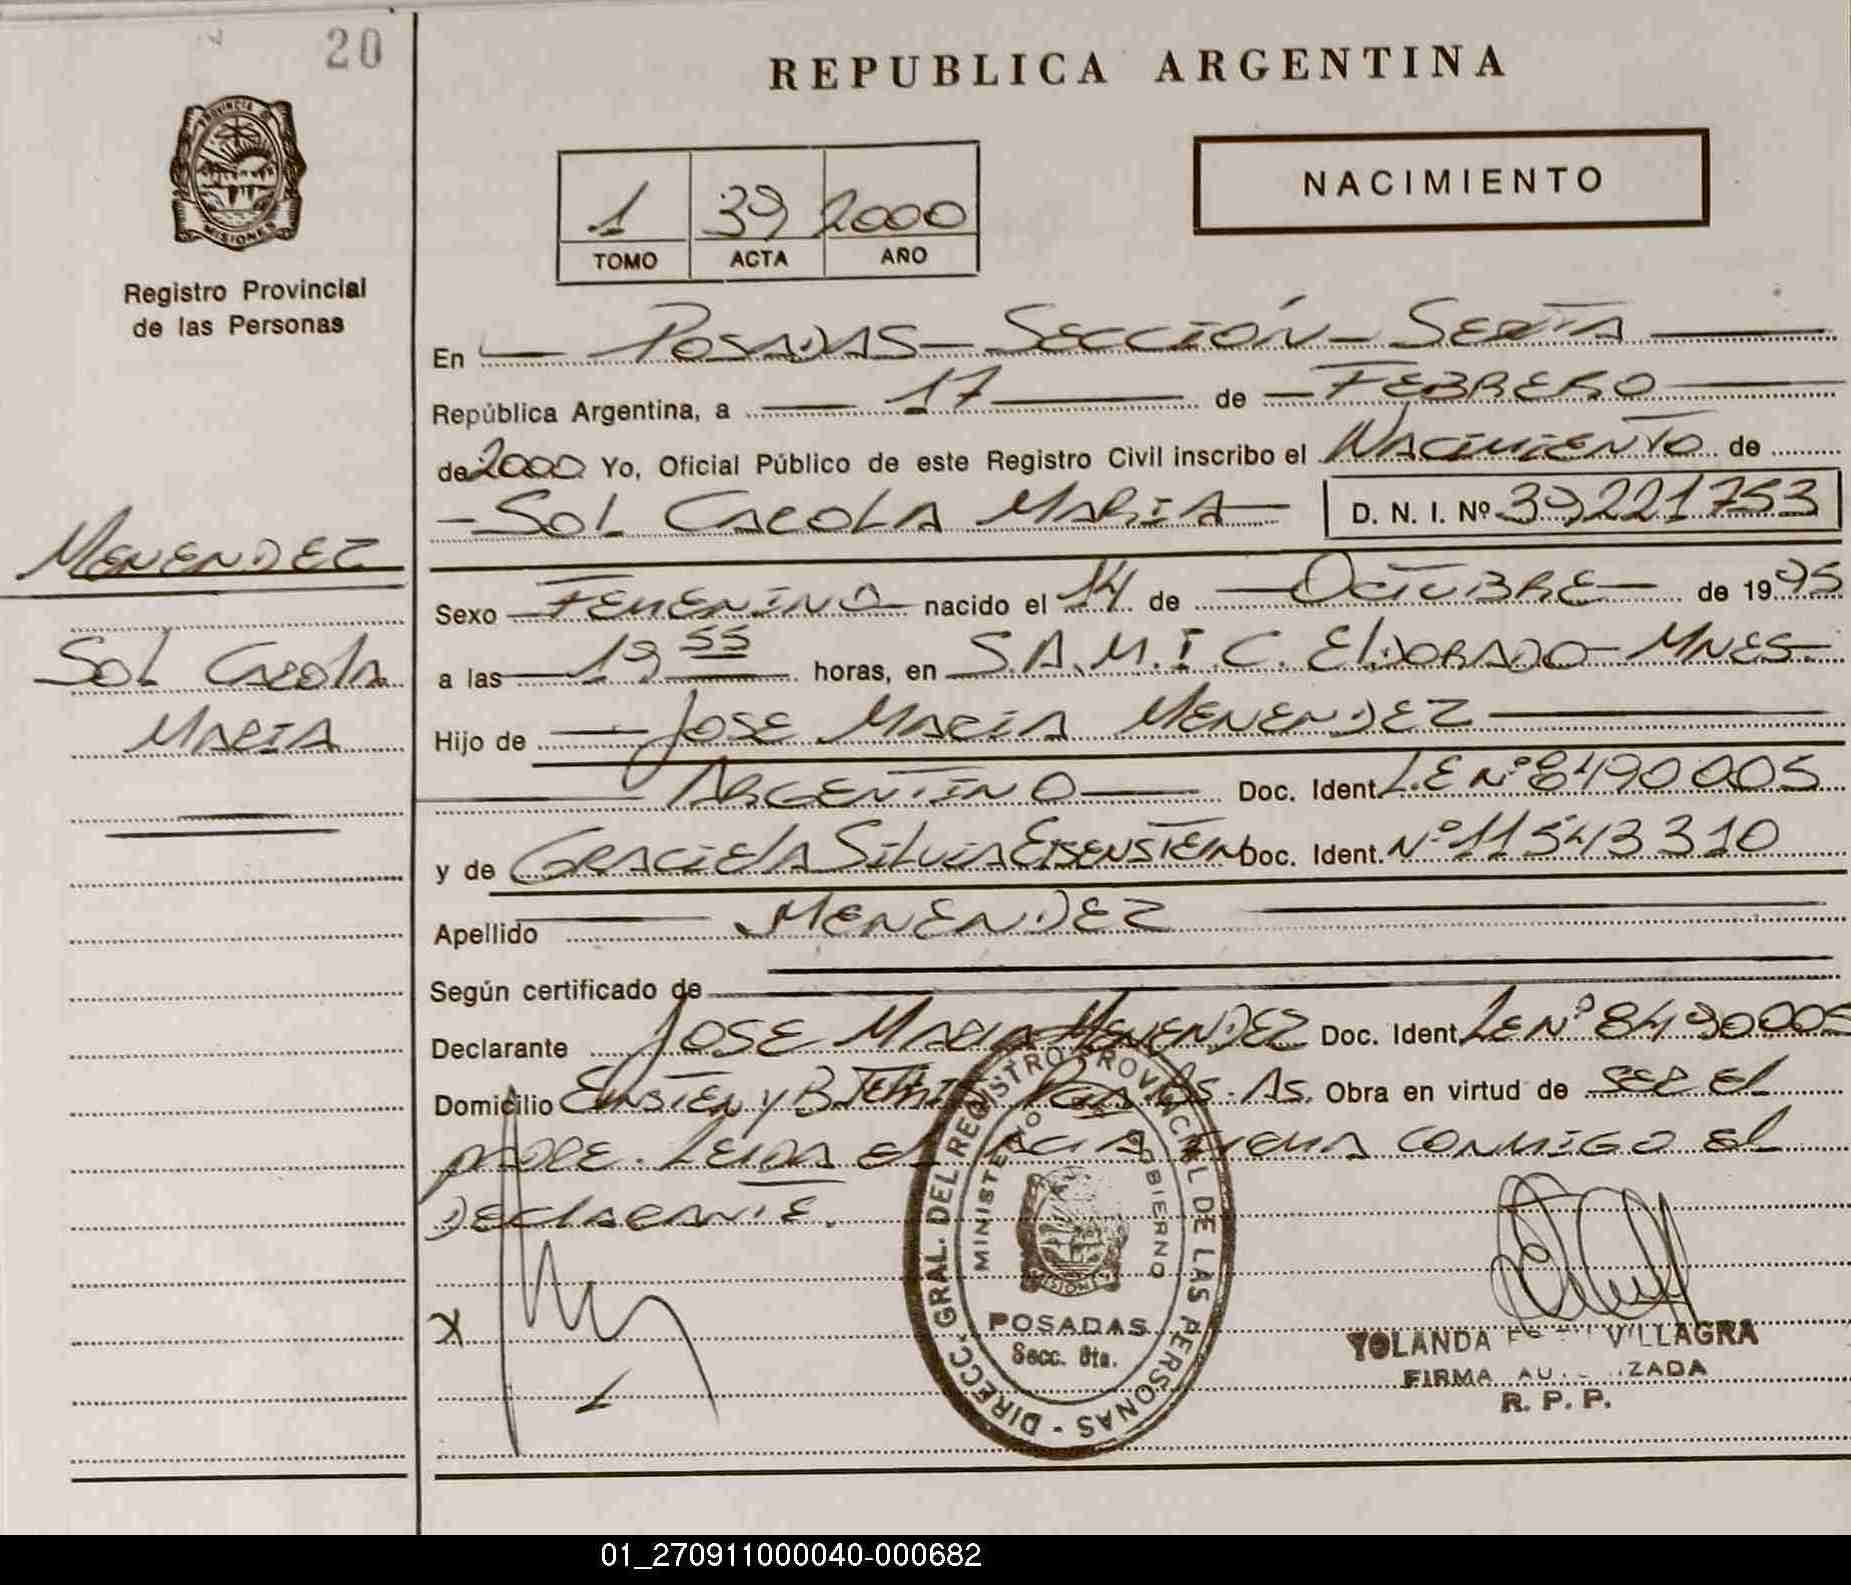 20
REPUBLICA ARGENTINA
PROVINCIA
MISIONES
Registro Provincial
de las Personas
1 39 2000
TOMO ACTA AÑO
NACIMIENTO
En POSADAS - SECCIÓN - SEXTA
República Argentina, a 17 de FEBRERO
de 2000 Yo, Oficial Público de este Registro Civil inscribo el NACIMIENTO de
- SOL CAROLA MARIA - D. N. I. Nº 39,221753
MENENDEZ
SOL CAROLA
MARIA
Sexo FEMENINO nacido el 14 de OCTUBRE de 1995
a las 19 55 horas, en S.A.M.I.C. ELDORADO - MNES-
Hijo de JOSE MARIA MENENDEZ
ARGENTINO Doc. Ident. L.E Nº 8490005
y de GRACIELA SILVIA EISENSTEIN Doc. Ident. Nº 11543310
Apellido MENENDEZ
Según certificado de
Declarante JOSE MARIA MENENDEZ Doc. Ident. LE Nº 8490005
Domicilio Y BS-AS. Obra en virtud de SER EL
PADRE. LEIDA EL ACTA FIRMA CONMIGO EL
DECLARANTE.
X
DIRECC. GRAL. DEL REGISTRO PROVINCIAL DE LAS PERSONAS -
MINISTERIO GOBIERNO
MISIONES
POSADAS
Secc. 6ta.
YOLANDA VILLAGRA
FIRMA AUTORIZADA
R. P. P.
01_270911000040-000682